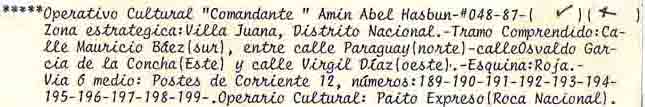 *****Operativo Cultural "Comandante " Amin Abel Hasbun-#048-87-( ✓ )( ★ )
Zona estrategica:Villa Juana, Distrito Nacional.-Tramo Comprendido:Ca-
lle Mauricio Báez(sur), entre calle Paraguay(norte)-calleOsvaldo Gar-
cia de la Concha(Este) y calle Virgil Díaz(oeste).-Esquina:Roja.-
Via ó medio: Postes de Corriente 12, números:189-190-191-192-193-194-
195-196-197-198-199-.Operario Cultural: Paito Expreso(Roca Nacional).